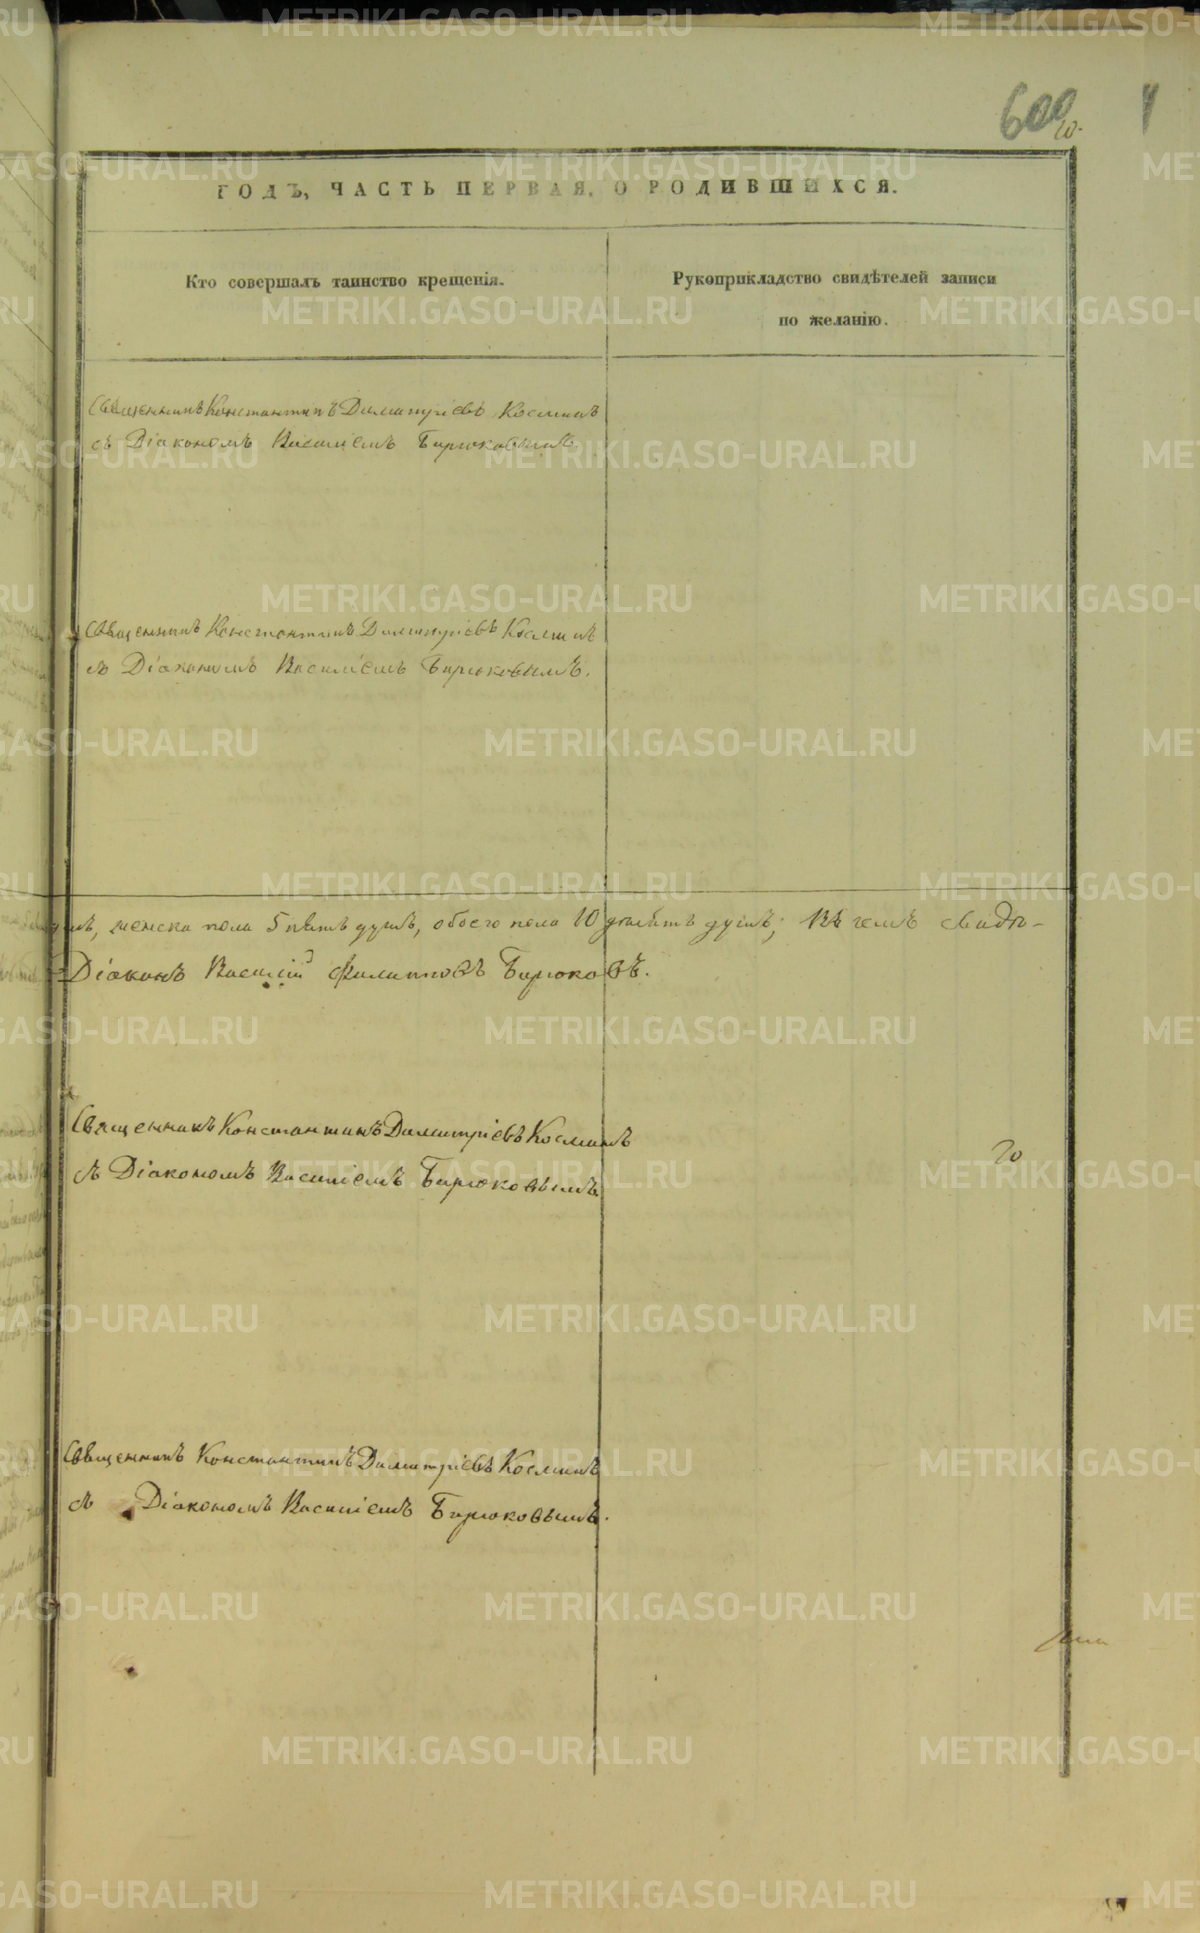 600
ГОДЪ, ЧАСТЬ ПЕРВАЯ, О РОДИВШИХСЯ.
Кто совершалъ таинство крещенія.
Рукоприкладство свидѣтелей записи
по желанію.
Священникъ Константинъ Димитріевъ Косминъ
съ Діакономъ Василіемъ Бирюковымъ
Священникъ Константинъ Димитріевъ Косминъ
съ Діакономъ Василіемъ Бирюковымъ.
женска пола 5 пять душъ, обоего пола 10 душъ; Въ чемъ свидѣ-
Діаконъ Василій Филипповъ Бирюковъ.
Священникъ Константинъ Димитріевъ Косминъ
съ Діакономъ Василіемъ Бирюковымъ
Священникъ Константинъ Димитріевъ Косминъ
съ Діакономъ Василіемъ Бирюковымъ.
METRIKI.GASO-URAL.RU